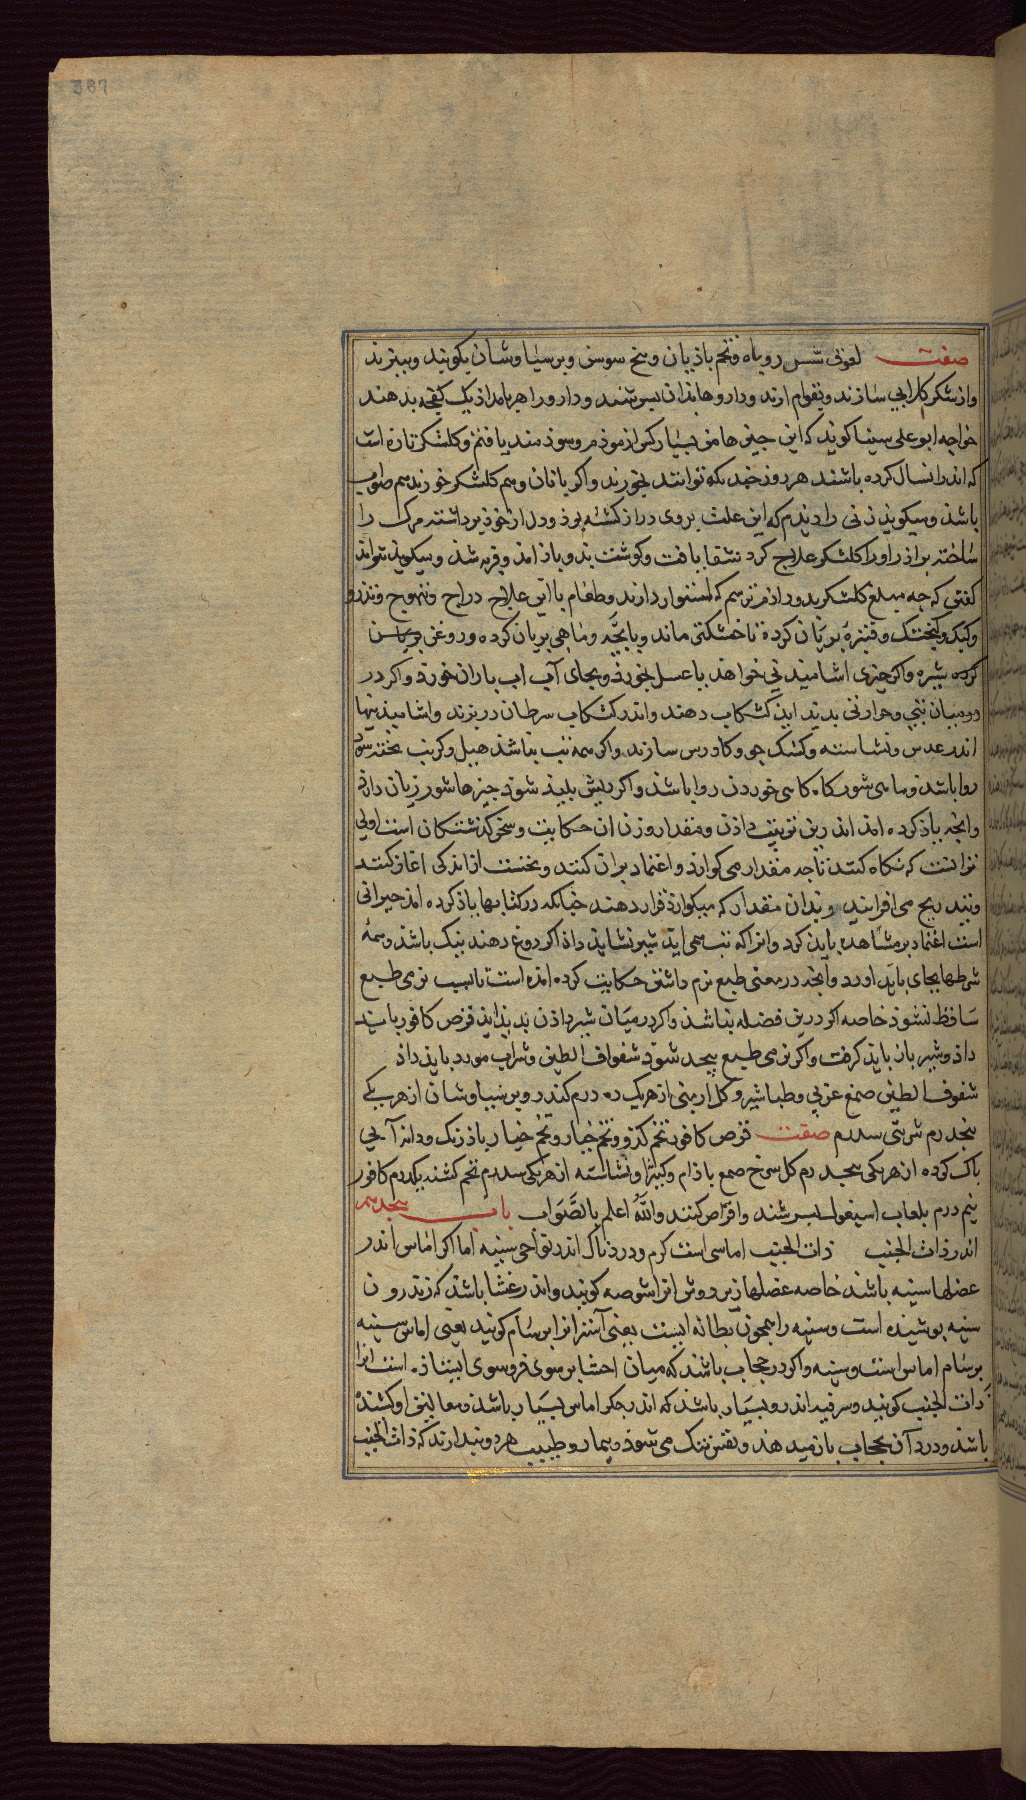 367
صفت لعوق شش روباه و تخم باذیان و بیخ سوسن و برسیاوشان بکوبند و ببیزند
و از شکر کلابی سازند و بقوام ارند و داروها بذان بسرشند و دارو را هر بامداد یک کفچه بدهند
خواجه ابو علی سینا کوید که این جیزها من بسیار کس ازموذم و سوذمند یافتم و کلشکر تازه است
که اندر انسال کرده باشند هر روز جندانکه توانند بخورند و اکر با نان و هم کلشکر خورند هم صواب
باشذ و میکوید زنی را دیذم که این علت بروی دراز کشته بوذ و دل از خوذ برداشته مرک را
ساخته براذر او را کلشکر علاج کرد شفا یافت و کوشت بدو باز امذ و فربه شذ و میکوید نتوانم
کفتن که جه مبلغ کلشکر بدو داذم ترسم که استوار ندارند و طعام با این علاج دراج و تیهوج و تذرو
و کبک و کنجشک و قنبره بریان کرده تا خشکتر ماند و پایجه و ماهی بریان کرده و روغن
کرده بشره و اکر جیزی اشامیدنی خواهذ با عسل خورذ و بجای آب اب باران خورذ و اکر در
در میان تبی و حرارتی بدید ایذ کشکاب دهند و اندر کشکاب سرطان در پزند و اشامیذنیها
اندر عدس و نشاسته و کشک جو و کاورس سازند و اکر سرفه تب نباشذ هلیل و کرنب پخته سوذ
روا باشذ و ماهی شور کاه کاهی خوردن روا باشذ و اکر ریش پلیذ شوذ جیزها شور زیان دارد
و انجه یاذ کرده امذ اندرین ترتیب داذن و مقدار وزن ان حکایت و سخن کذشتکان است اولی
تر انست که نکاه کنند تاجه مقدار می کوارذ و اعتماد بران کنند و نخست از اندکی اغاز کنند
و بتدریج می افزایند و بدان مقدار که میکوارذ قرار دهند جنانکه در کتابها یاذ کرده امذ حیرانی
است اعتماد بر مشاهده باید کرد و انرا که تب می ایذ شیر نشایذ داذ اکر دوغ دهند نیک باشذ و همه
شرطها بجای باید اورد و انجه در معنی طبع نرم داشتن حکایت کرده امذه است تا بسبب نرمی طبع
ساقط نشوذ خاصه اکر درین فضله نباشذ و اکر در میان شیر داذن تب بدید ایذ قرص کافور بایذ
داذ و شیر باز باید کرفت و اکر نرمی طبع بیحد شوذ شفوف الطین و شراب مورد بایذ داذ
شفوف الطین صمغ عربی و طباشیر و کل ارمنی از هر یک ده درم کندر و برسیاوشان از هر یکی
بنجدرم شربتی سه درم صفت قرص کافور تخم کذو و تخم خیار و تخم خیار باذرنک و دانه آبی
باک کرده از هر یکی بنجدرم کل سرخ صمغ باذام و کتیرا و نشاسته از هر یکی سه درم تخم کشنه یکدرم کافور
نیم درم بلعاب اسبغول بسرشند و اقراص کنند والله اعلم بالصواب باب بنجدهم
اندر ذات الجنب ذات الجنب اماسی است کرم و دردناک اندر نواحی سینه اما اکر اماس اندر
عضلها سینه باشذ خاصه عضلها زیر و وش انرا شوصه کویند و اندر غشا باشذ که زندرون
سینه پوشیده است و سینه را همجون بطانه ایست یعنی آستر انرا برسام کویند یعنی اماس سینه
برسام اماس است و سینه و اکر در حجاب باشذ که میان احشا بر سوی فروسوی ایستاذه است انرا
ذات الجنب کویند و سرفه اندر و بسیار باشذ که اندر جکر اماس بسیار باشذ و بمعالیق او کشنده
باشذ و درد آن بحجاب باز میدهذ و نفس تنک می شوذ و بیمار و طبیب هر دو پندارند که ذات الجنب